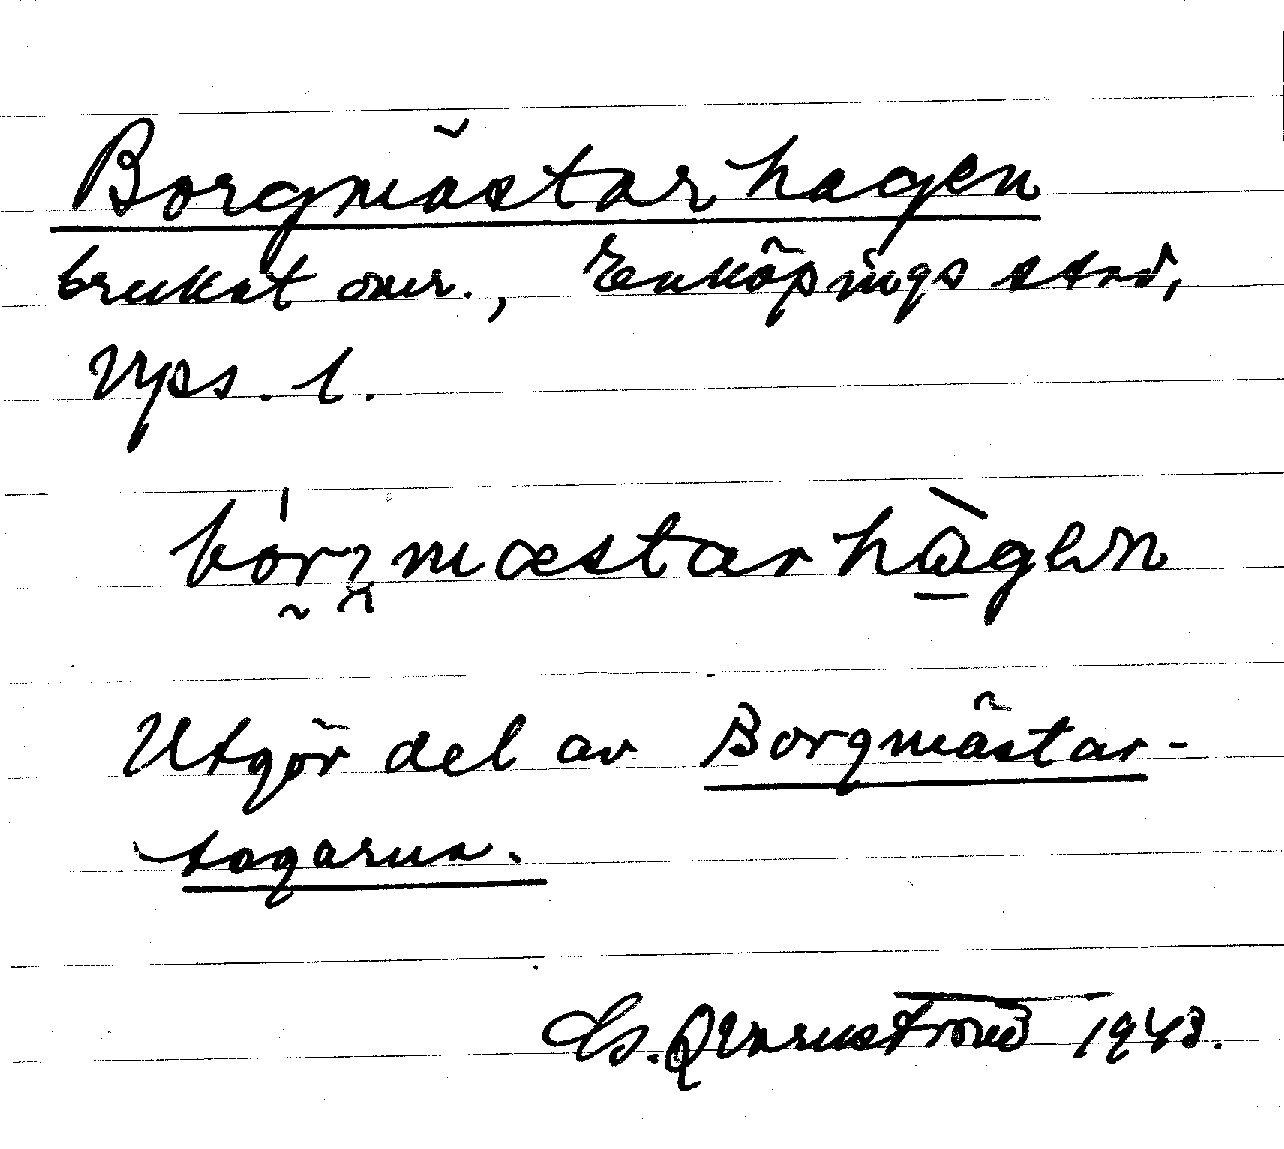 Borgmästarhagen
brukat omr., Enköpings stad,
Upps. l.
bo̰rʒmæstarhàgen
Utgör del av Borgmästar-
tagarna.
Qvarnström 1948.